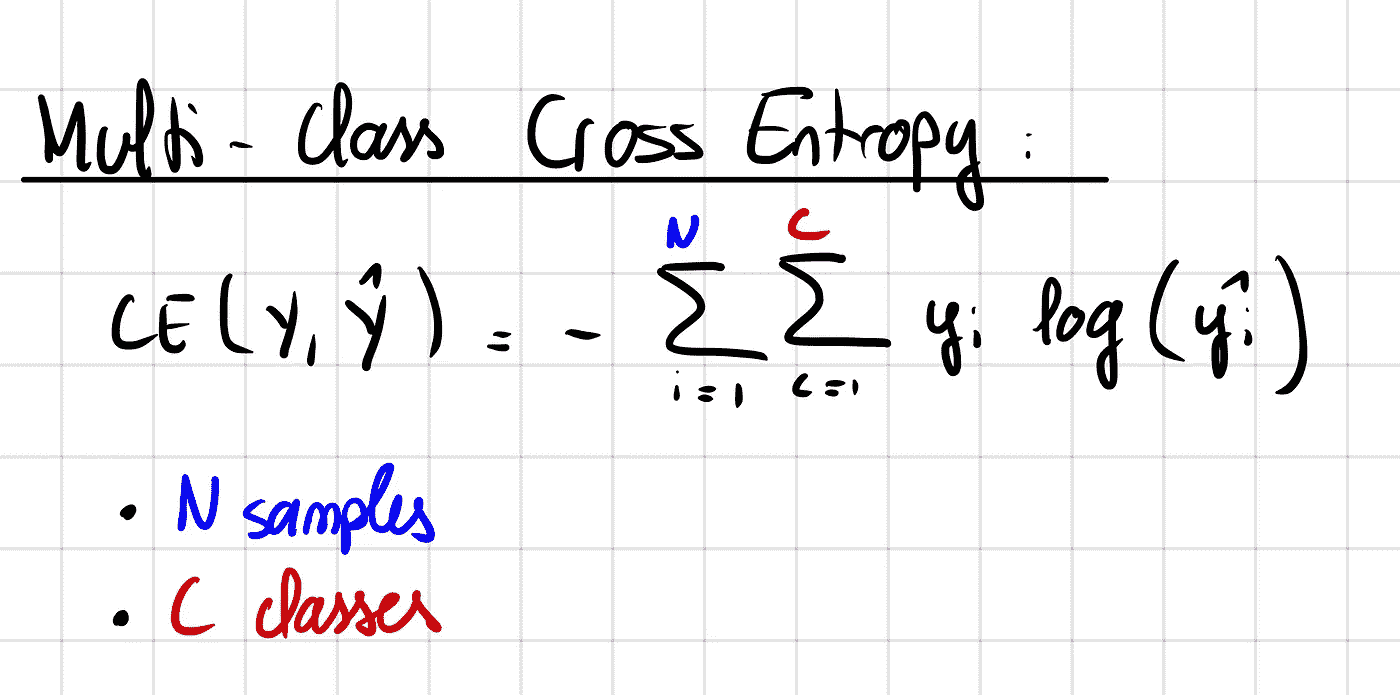 Multi-Class Cross Entropy:
CE(y, ŷ) = - ∑_{i=1}^{N} ∑_{c=1}^{C} y_i log(ŷ_i)
• N samples
• C classes